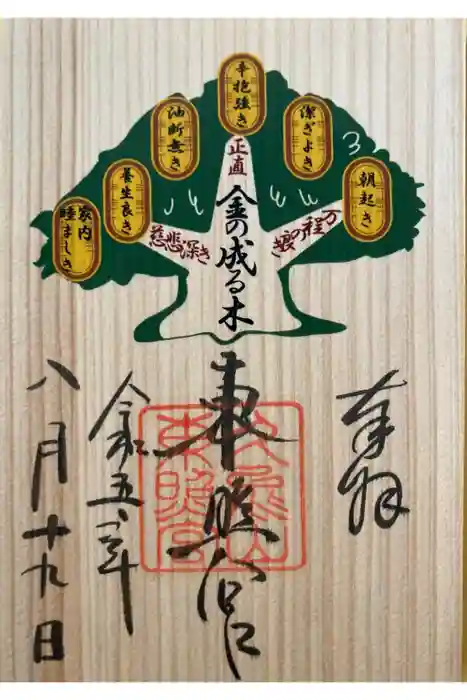 奉拝
朝起き
潔ぎよき
辛抱強き
油断無き
養生良き
家内
睦ましき
万程の
正直
慈悲深き
金の成る木
東照宮
久能山
東照宮
令和五年
八月十九日